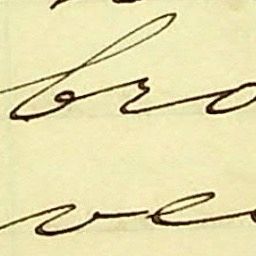 bro
ve